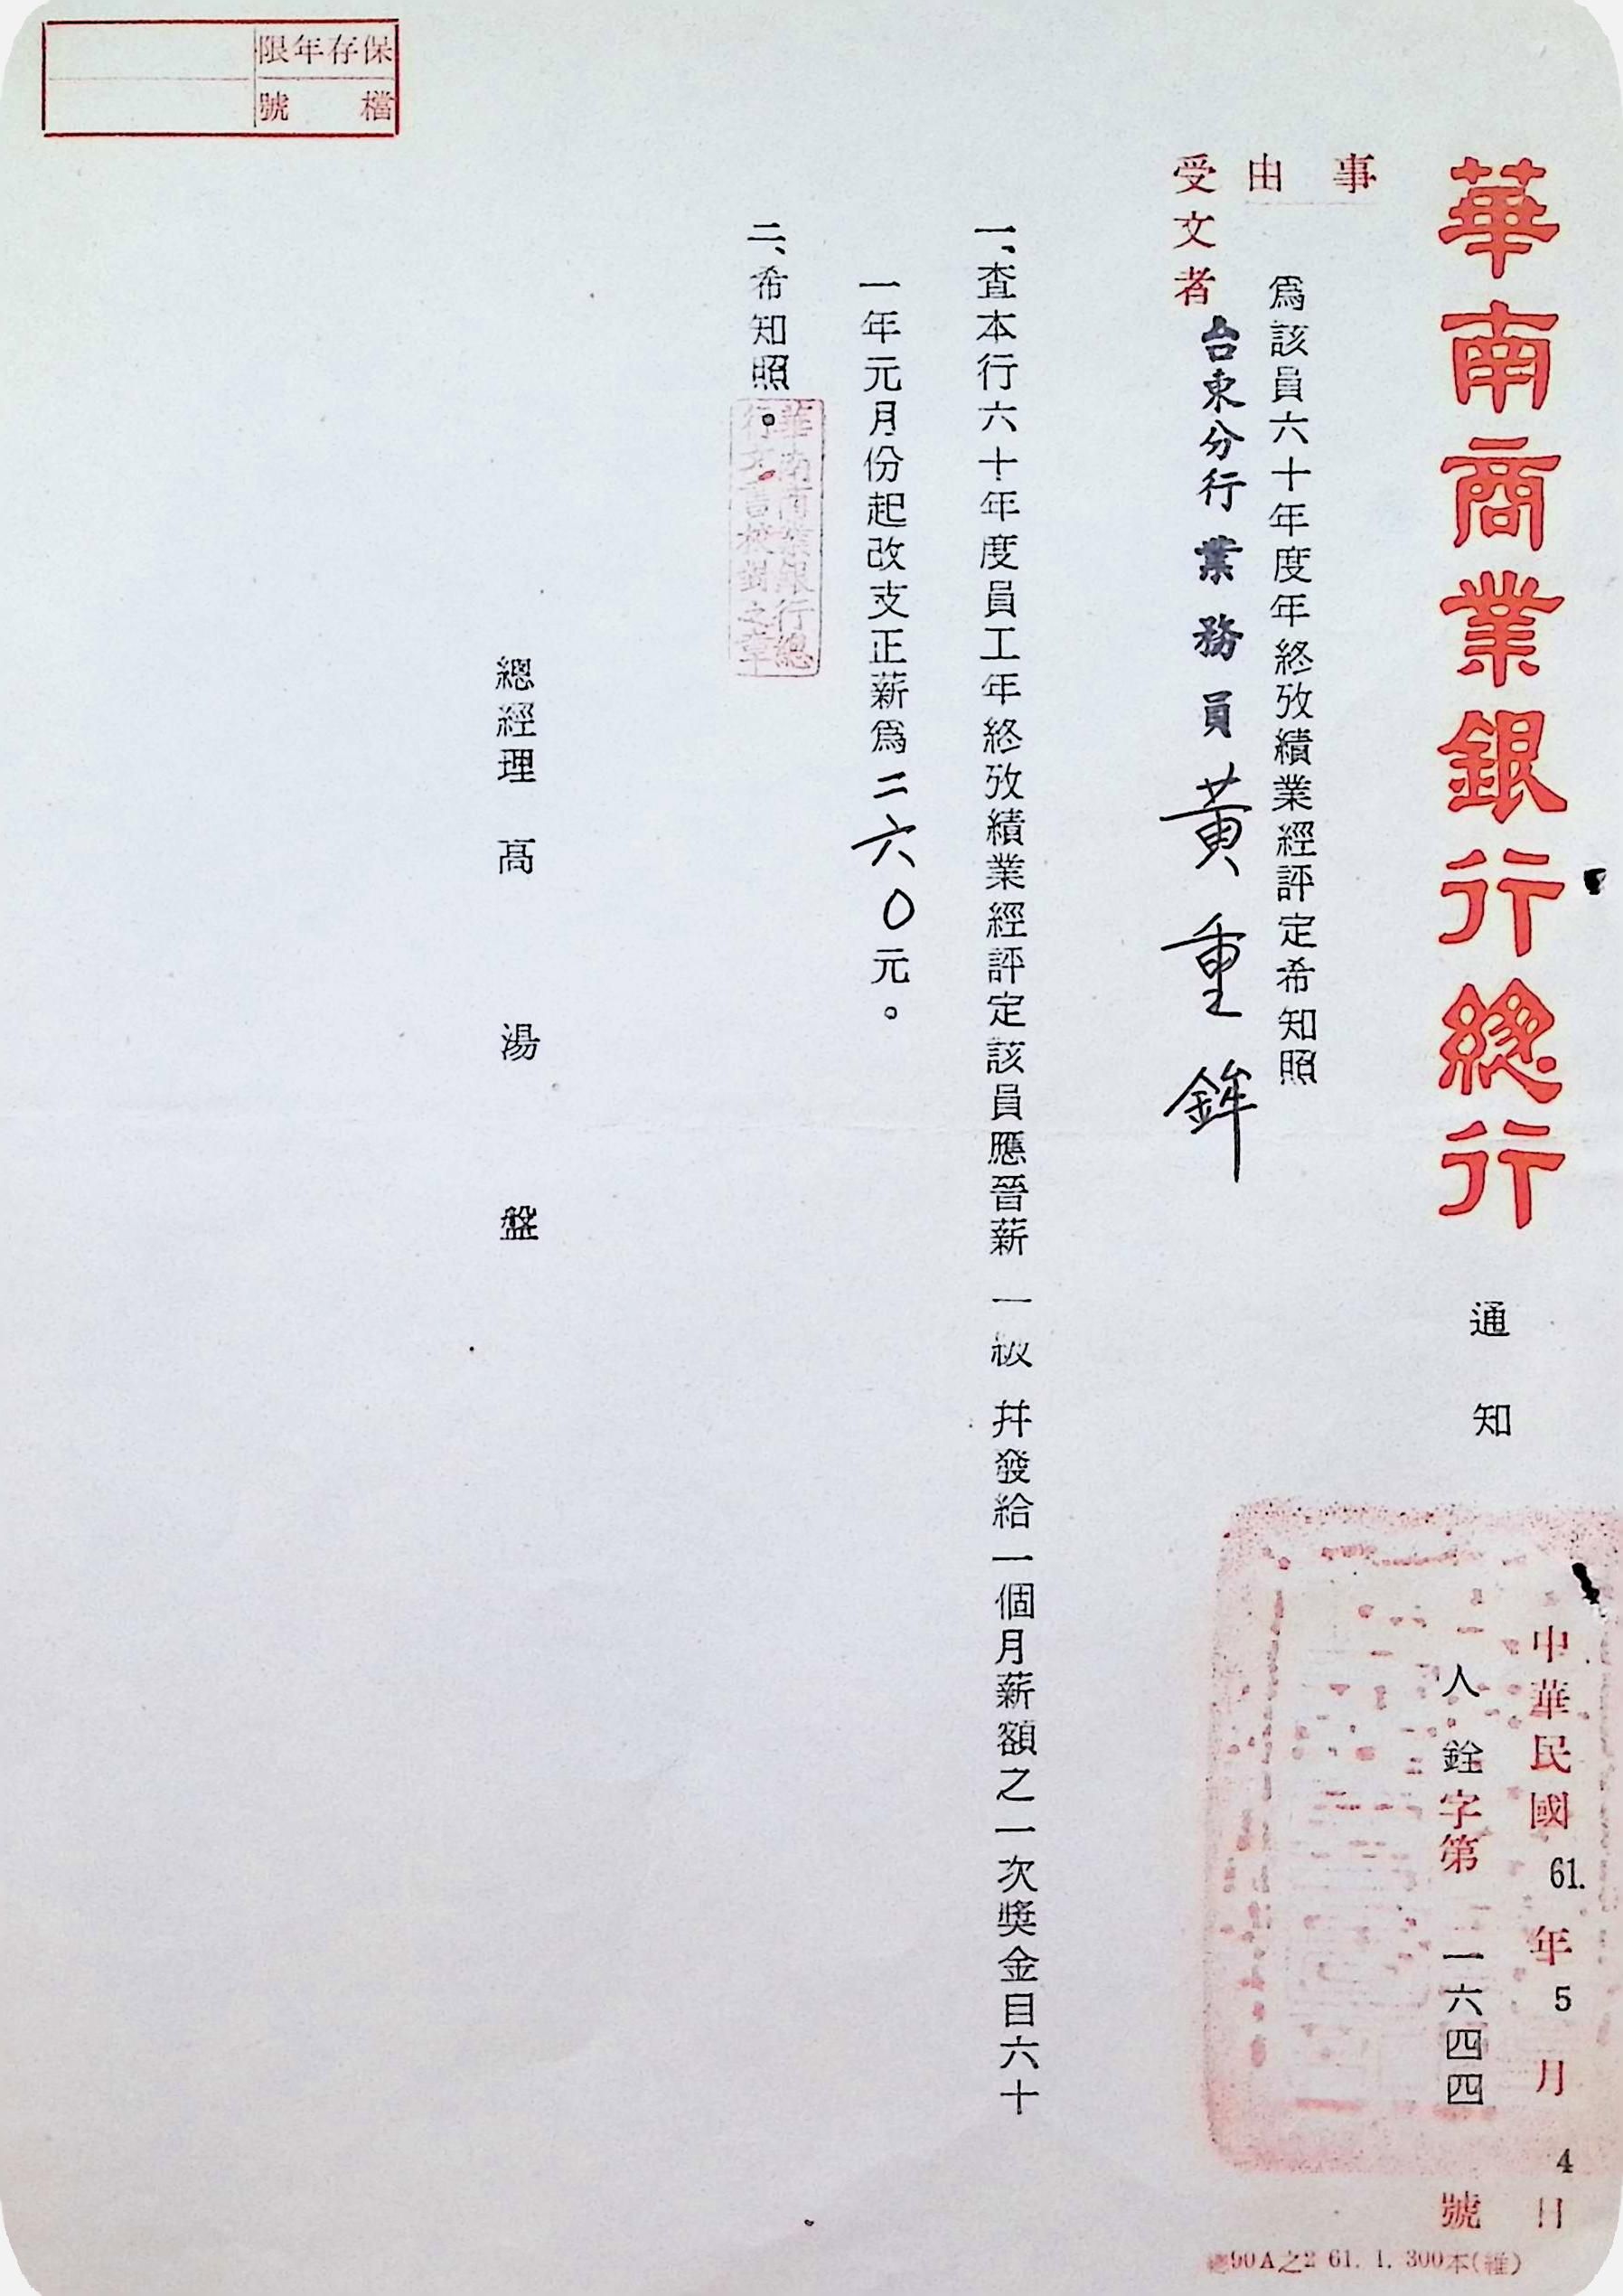 華南商業銀行總行 通知
中華民國61.年5月4日
人銓字第一六四四號
事由
爲該員六十年度年終攷績業經評定希知照
受文者 台東分行業務員 黃重鉾
一、查本行六十年度員工年終攷績業經評定該員應晉薪一級并發給一個月薪額之一次獎金目六十
一年元月份起改支正薪爲二六〇元。
二、希知照。
華南商業銀行總
行文書校對之章
總經理 高湯盤
保存年限
檔號
90A之2 61. 1. 300本(維)